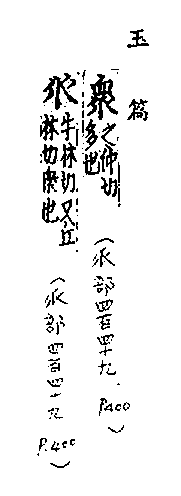 玉篇
眾之仲切
多也
(㐺部四百四十九 P400)
㐺牛林切又丘
林切眾也
(㐺部四百四十九 P.400)